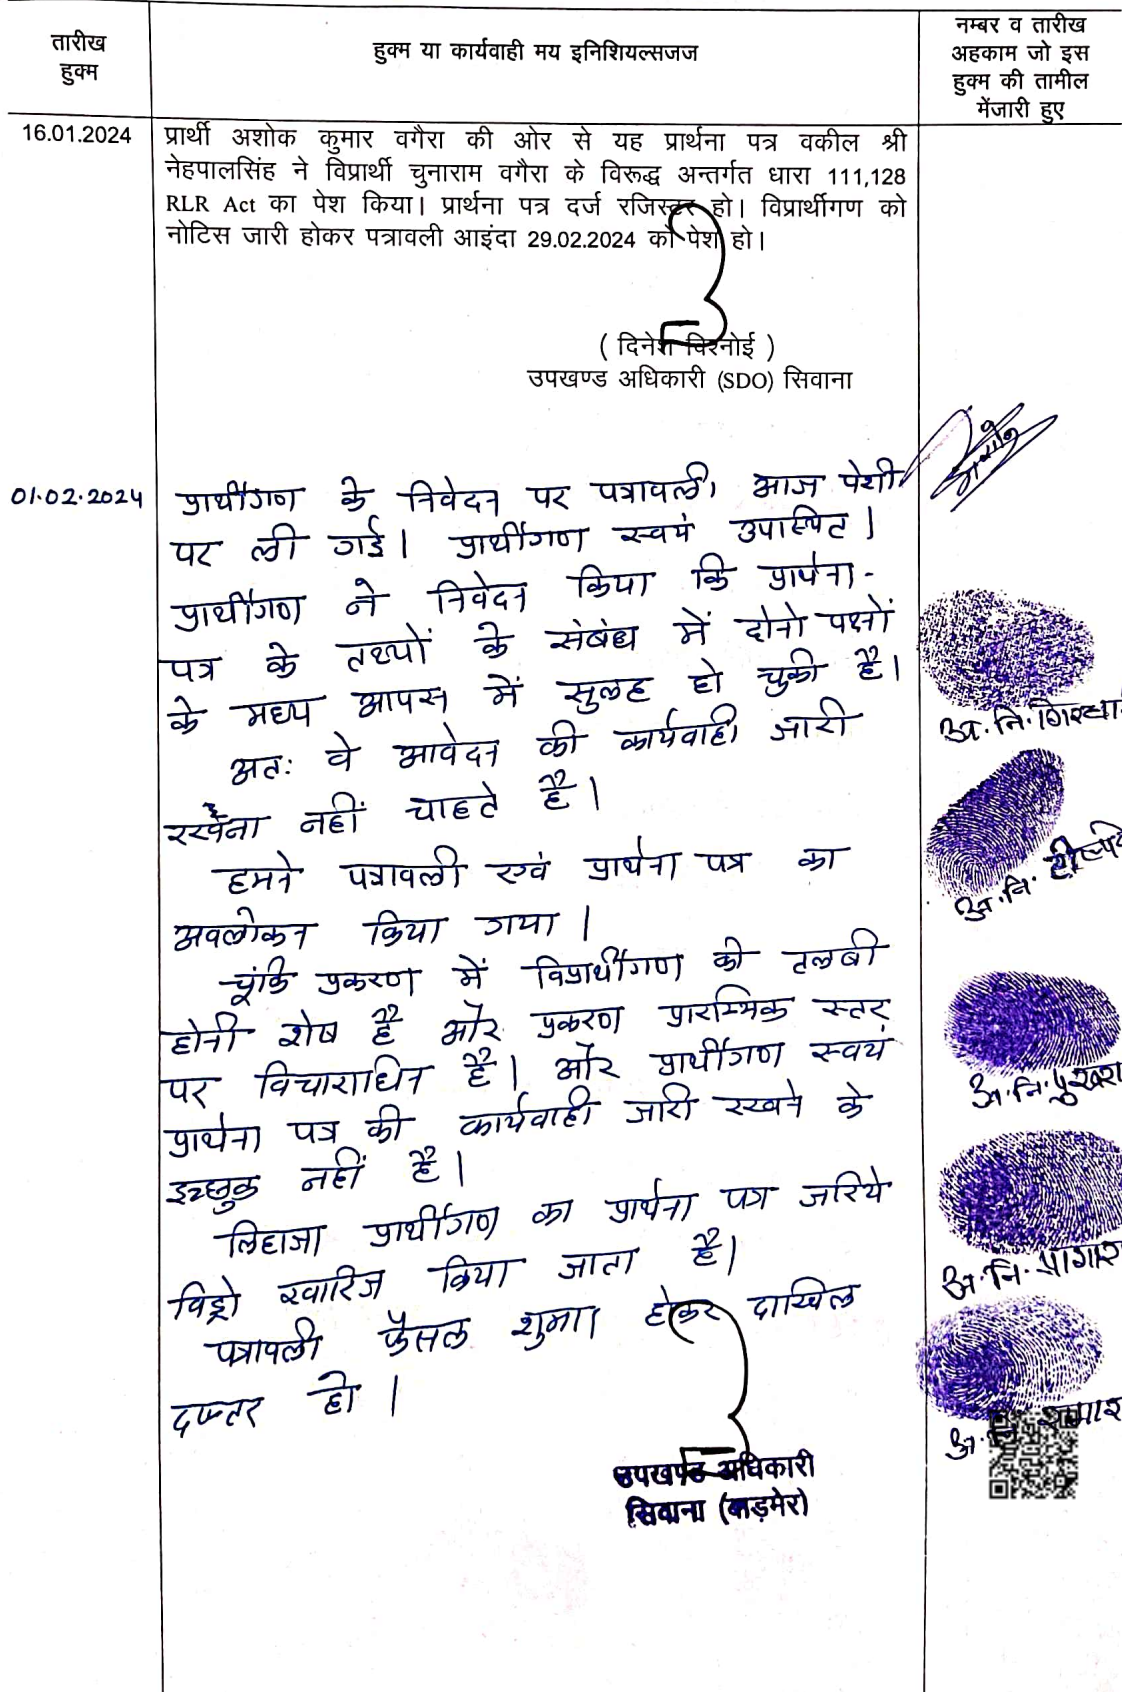 तारीख
हुक्म
हुक्म या कार्यवाही मय इनिशियल्सजज
नम्बर व तारीख
अहकाम जो इस
हुक्म की तामील
मेंजारी हुए
16.01.2024
प्रार्थी अशोक कुमार वगैरा की ओर से यह प्रार्थना पत्र वकील श्री
नेहपालसिंह ने विप्रार्थी चुनाराम वगैरा के विरूद्ध अन्तर्गत धारा 111,128
RLR Act का पेश किया। प्रार्थना पत्र दर्ज रजिस्टर हो। विप्रार्थीगण को
नोटिस जारी होकर पत्रावली आइंदा 29.02.2024 को पेश हो।
( दिनेश विश्नोई )
उपखण्ड अधिकारी (SDO) सिवाना
01.02.2024
प्रार्थीगण के निवेदन पर पत्रावली आज पेशी
पर ली गई। प्रार्थीगण स्वयं उपस्थित।
प्रार्थीगण ने निवेदन किया कि प्रार्थना-
पत्र के तथ्यों के संबंध में दोनो पक्षों
के मध्य आपस में सुलह हो चुकी है।
अतः वे आवेदन की कार्यवाही जारी
रखना नहीं चाहते है।
हमने पत्रावली एवं प्रार्थना पत्र का
अवलोकन किया गया।
चूंकि प्रकरण में विप्रार्थीगण की तलबी
होनी शेष है और प्रकरण प्रारम्भिक स्तर
पर विचाराधिन है। और प्रार्थीगण स्वयं
प्रार्थना पत्र की कार्यवाही जारी रखने के
इच्छुक नहीं है।
लिहाजा प्रार्थीगण का प्रार्थना पत्र जरिये
विड्रो खारिज किया जाता है।
पत्रावली फैसल शुमार होकर दाखिल
दफ्तर हो।
उपखण्ड अधिकारी
सिवाना (बाड़मेर)
अ.नि.
अ.नि.
अ.नि.
अ.नि.
अ.नि.